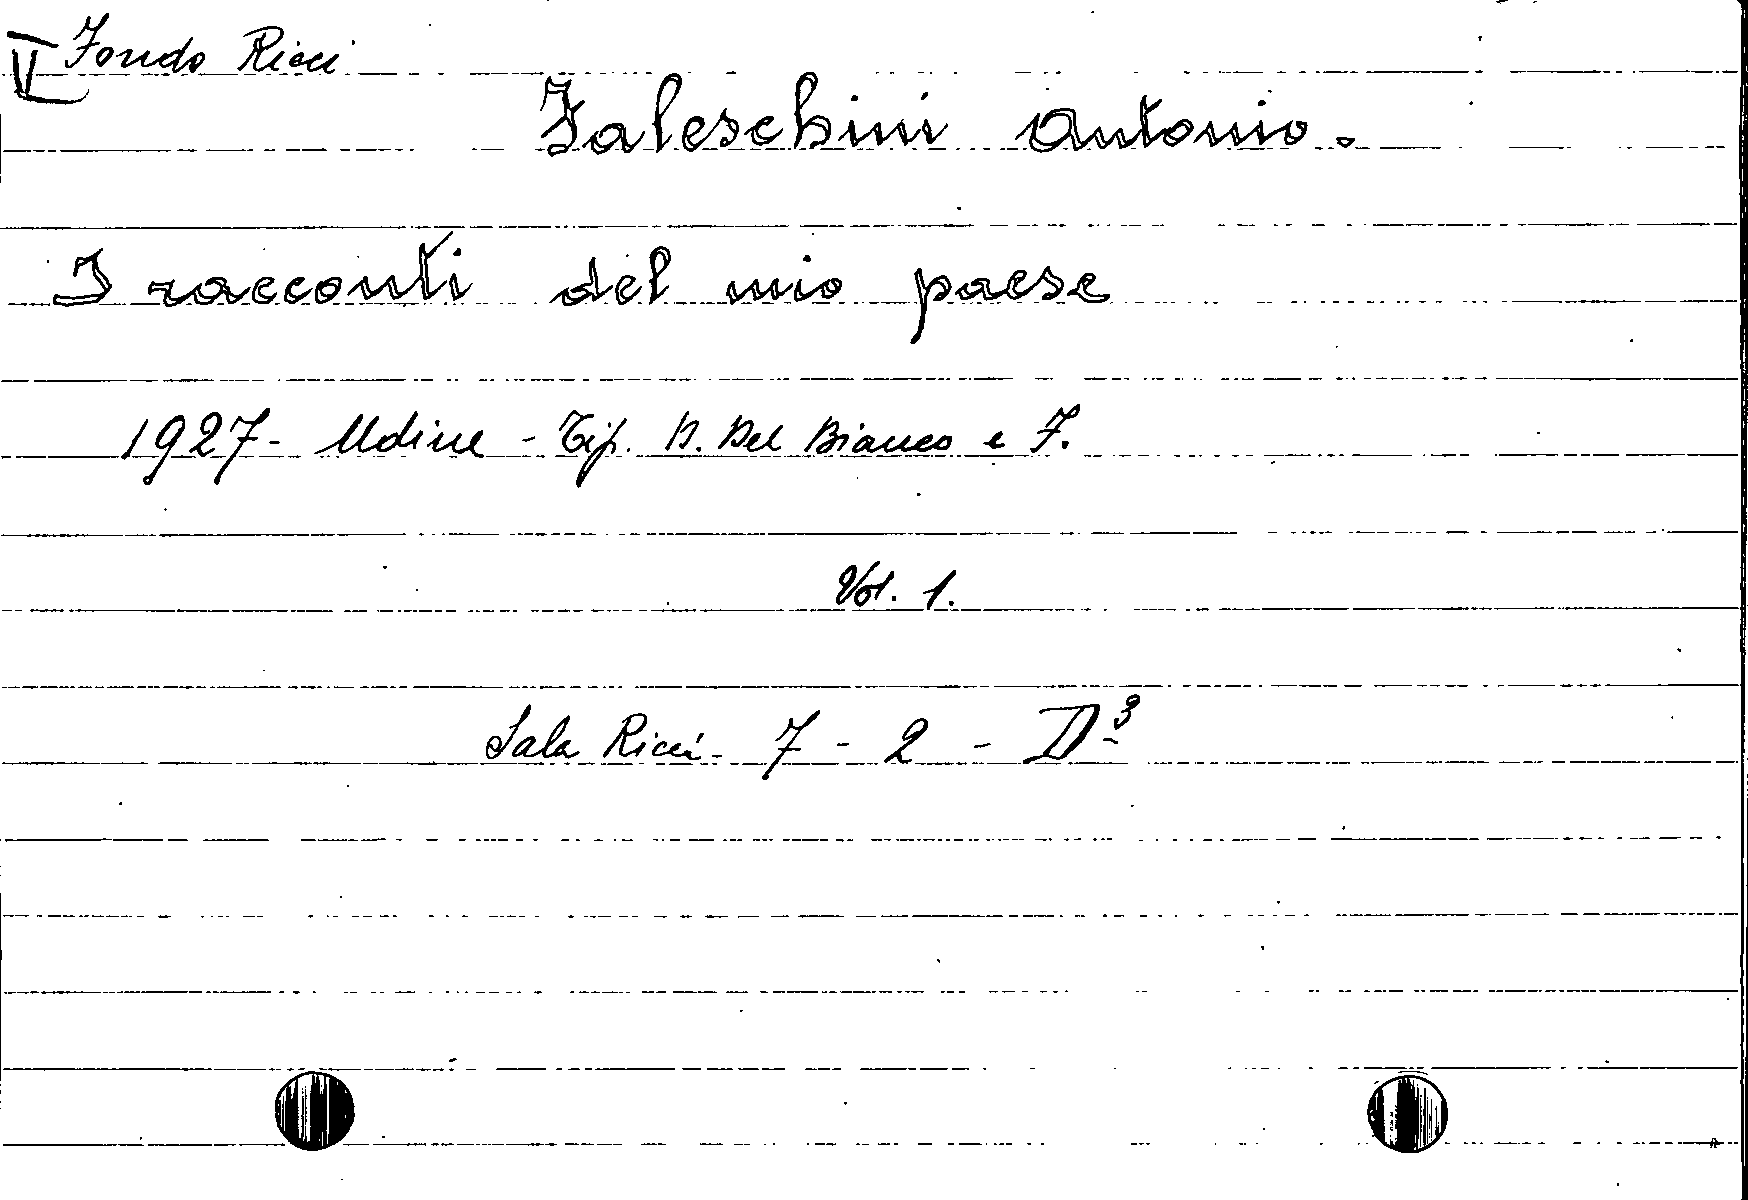 V Fondo Ricci
Faleschini Antonio.
I racconti del mio paese
1927 - Udine - Tip. D. Del Bianco e F.
Vol. 1.
Sala Ricci - 7 - 2 - D³